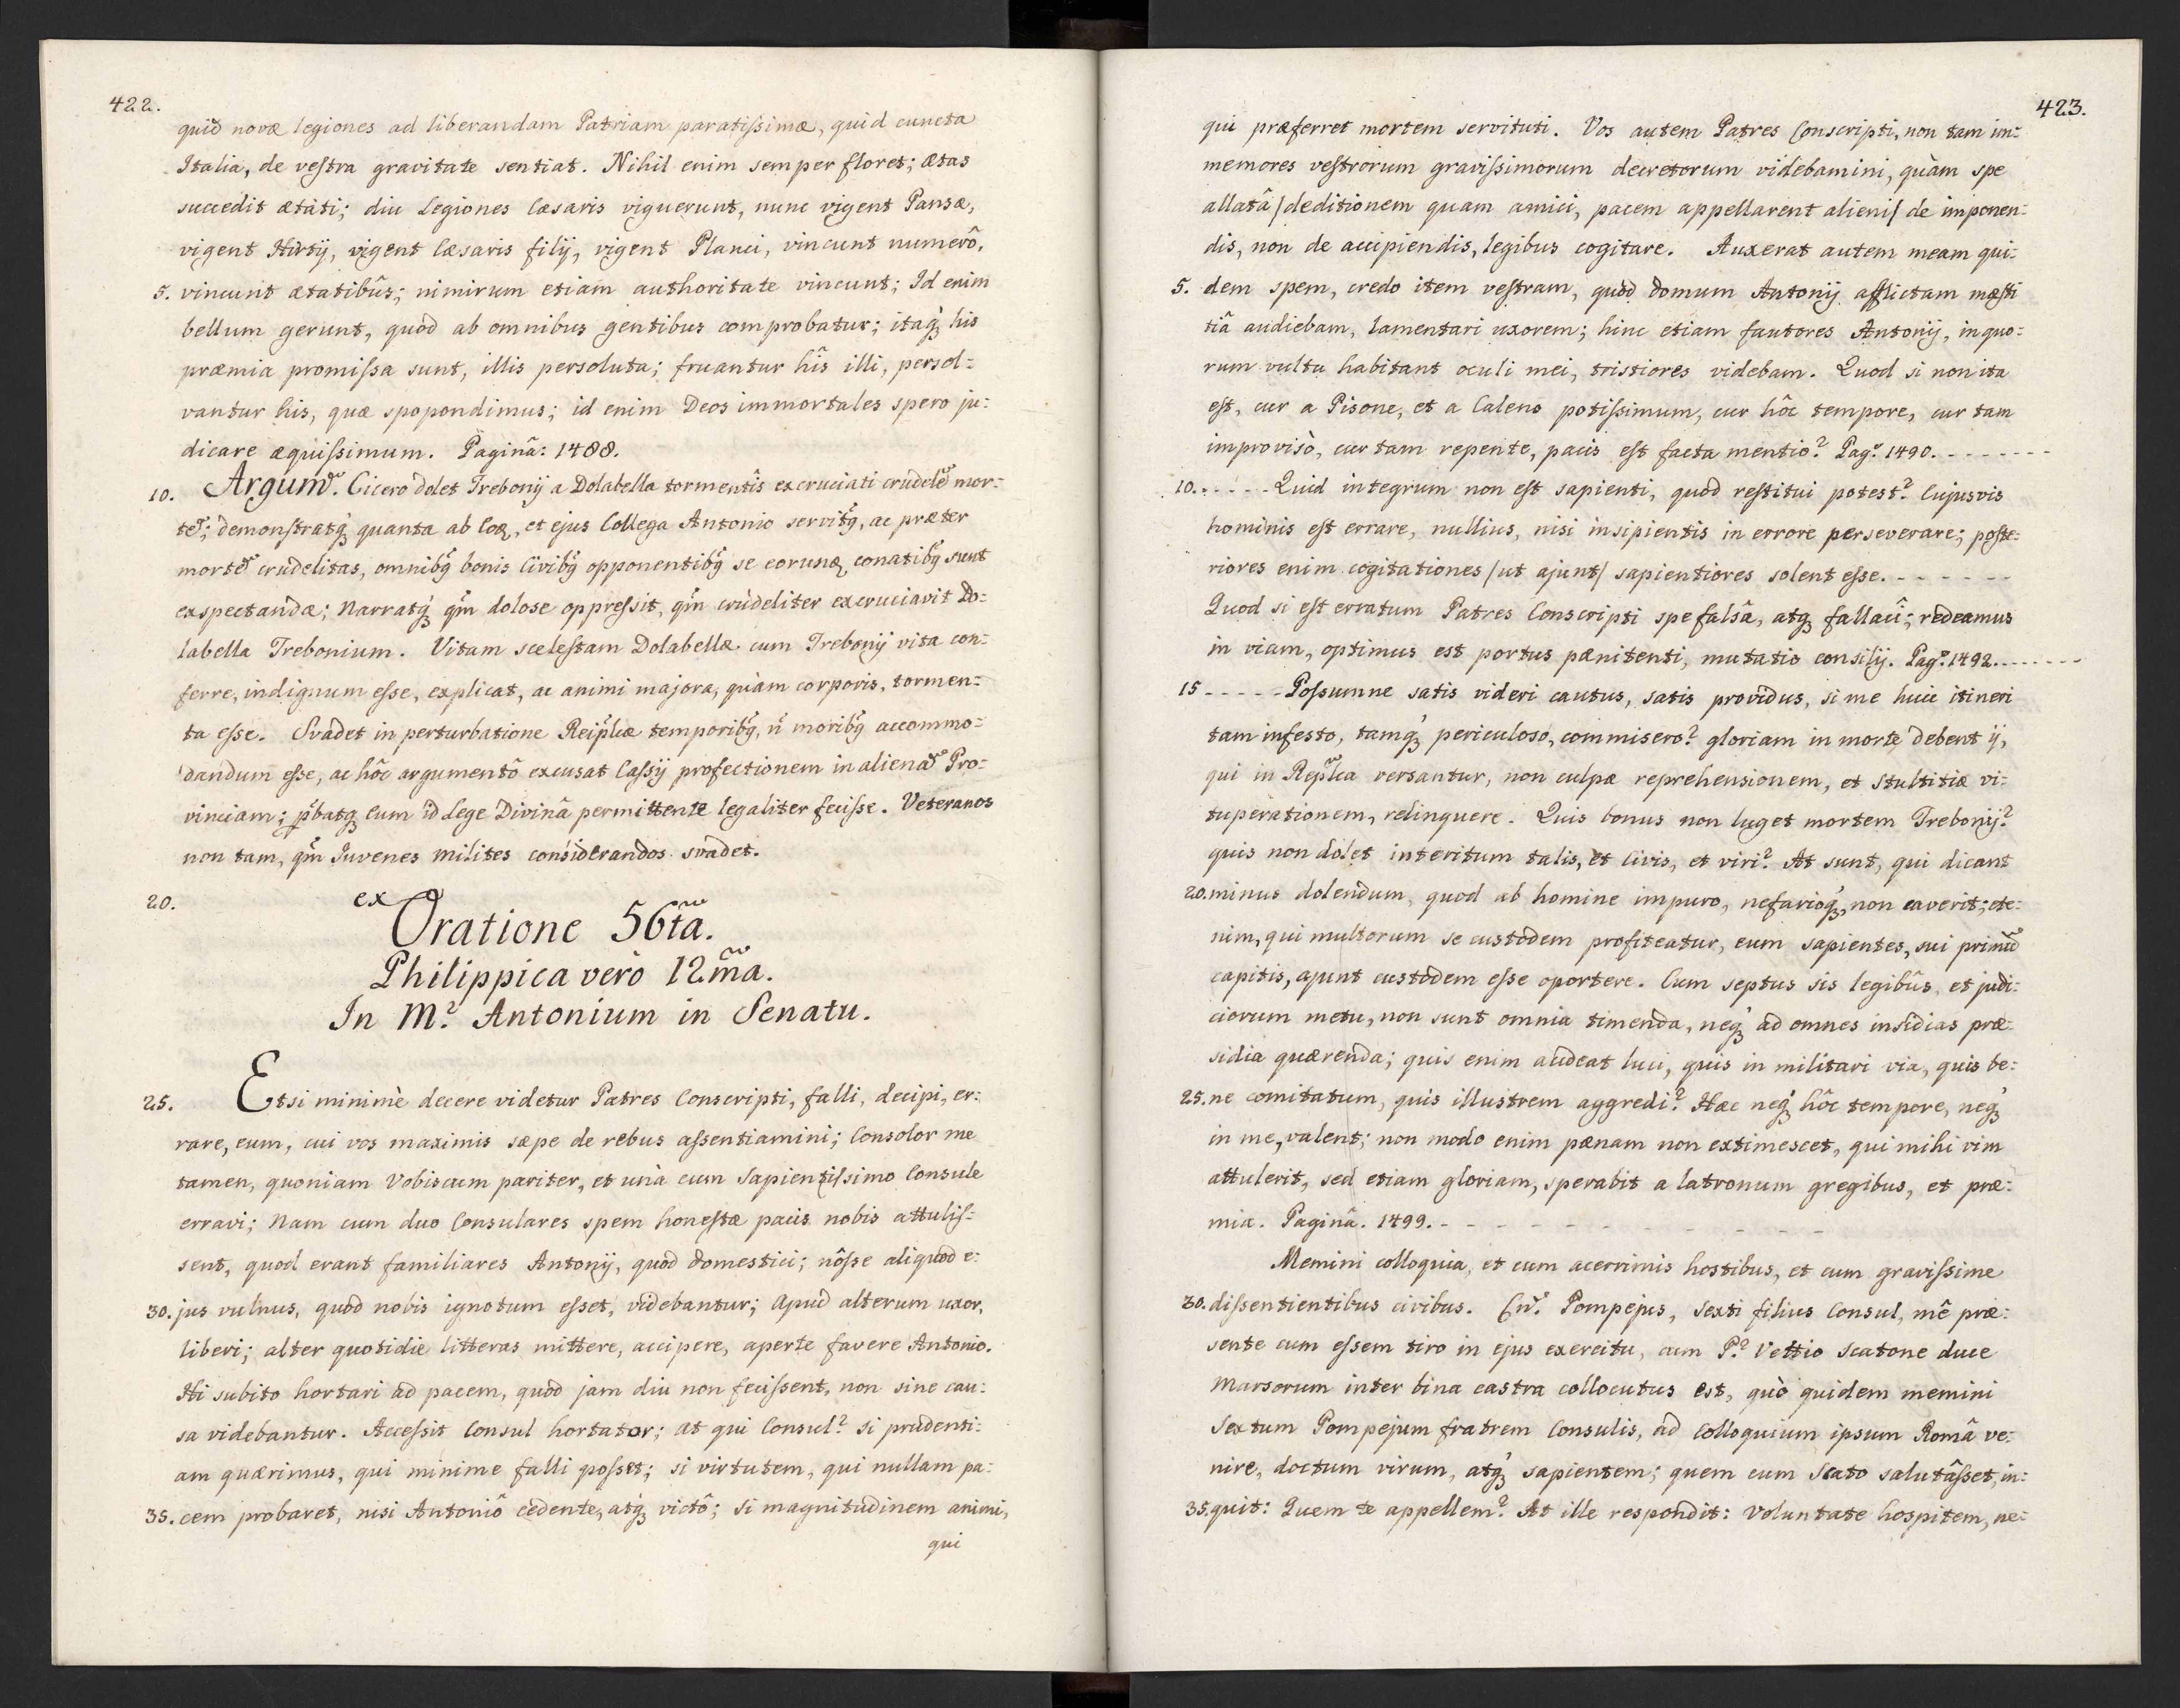 422.
quid novæ legiones ad liberandam Patriam paratissimæ, quid cuncta
Italia, de vestra gravitate sentiat. Nihil enim semper floret; ætas
succedit ætati; diu Legiones Cæsaris viguerunt, nunc vigent Pansæ,
vigent Hirtij, vigent Cæsaris filij, vigent Planci, vincunt numerô,
5. vincunt ætatibûs; nimirum etiam authoritate vincunt; Id enim
bellum gerunt, quod ab omnibus gentibus comprobatur; itaq́ꝫ his
præmia promissa sunt, illis persoluta; fruantur hîs illi, persol=
vantur his, quæ spopondimus; id enim Deos immortales spero ju=
dicare æquissimum. Paginâ: 1488.
10. Argum̃. Cicero dolet Trebonij a Dolabella tormentîs excruciati crudelẽ mor=
tẽ; demonstratq́ꝫ quanta ab Eoꝝ, et ejus Collega Antonio servitꝫ, ac præter
mortẽ crudelitas, omnibꝫ bonis Civibꝫ opponentibꝫ se eorunꝫ conatibꝫ sunt
exspectandæ; Narratq́ꝫ qm̃ dolose oppressit, qm̃ crudeliter excruciavit Do=
labella Trebonium. Vitam scelestam Dolabellæ cum Trebonij vita con=
ferre, indignum esse, explicat, ac animi majora, quàm corporis, tormen=
ta esse. Svadet in perturbatione Reip̃lcæ temporibꝫ, ñ moribꝫ accommo=
dandum esse, ac hôc argumentô excusat Cassij profectionem in alienã Pro=
vinciam; p̃batqꝫ Eum id Lege Divinâ permittente legaliter fecisse. Veteranos
non tam, qm̃ Juvenes Milites considerandos svadet.
20. ex
Oratione 56tã.
Philippica verò 12m̃a.
In M.? Antonium in Senatu.
25. Etsi minimè decere videtur Patres Conscripti, falli, decipi, er=
rare, eum, cui vos maximis sæpe de rebus assentiamini; Consolor me
tamen, quoniam Vobiscum pariter, et unà cum Sapientissimo Consule
erravi; Nam cum duo Consulares spem honestæ pacis nobis attulis=
sent, quod erant familiares Antonij, quod domestici; nôsse aliquod e=
30. jus vulnus, quod nobis ignotum esset, videbantur; Apud alterum uxor,
liberi; alter quotidie litteras mittere, accipere, aperte favere Antonio.
Hi subito hortari ad pacem, quod jam diu non fecissent, non sine cau=
sa videbantur. Accessit Consul hortator; at qui Consul? si prudenti=
am quærimus, qui minime falli posset; si virtutem, qui nullam pa=
35. cem probaret, nisi Antoniô cedente, atq́ꝫ victô; si magnitudinem animi,
qui
423.
qui præferret mortem servituti. Vos autem Patres Conscripti, non tam im=
memores vestrorum gravissimorum decretorum videbamini, quàm spe
allatâ /deditionem quam amici, pacem appellarent alieni/ de imponen=
dis, non de accipiendis, legibus cogitare. Auxerat autem meam qui=
5. dem spem, credo item vestram, quòd domum Antonij afflictam mæsti
tiâ audiebam, lamentari uxorem; hinc etiam fautores Antonij, in quo=
rum vultu habitant oculi mei, tristiores videbam. Quod si non ita
est, cur a Pisone, et a Caleno potissimum, cur hôc tempore, cur tam
improvisò, cur tam repente, pacis est facta mentio? Pag. 1490. - - - - - - -
10. - - - - - Quid integrum non est sapienti, quod restitui potest? Cujusvis
hominis est errare, nullius, nisi insipientis in errore perseverare; poste=
riores enim cogitationes /ut ajunt/ sapientiores solent esse. - - - - - -
Quod si est erratum Patres Conscripti spe falsâ, atqꝫ fallacî; redeamus
in viam, optimus est portus pænitenti, mutatio consilij. Pag. 1492. - - - - - - -
15 - - - - - Possumne satis videri cautus, satis providus, si me huic itineri
tam infesto, tamq́ꝫ periculoso, commisero? gloriam in morte debent ij,
qui in Rep̃lca versantur, non culpæ reprehensionem, et Stultitiæ vi=
tuperationem, relinquere. Quis bonus non luget mortem Trebonij?
quis non dolet interitum talis, et Civis, et viri? At sunt, qui dicant
20. minus dolendum, quod ab homine impuro, nefarioq́ꝫ, non caverit; ete=
nim, qui multorum se custodem profiteatur, eum sapientes, sui primũ
capitis, ajunt custodem esse oportere. Cum septus sis legibûs, et judi=
ciorum metu, non sunt omnia timenda, neq́ꝫ ad omnes insidias præ=
sidia quærenda; quis enim audeat luci, quis in militari via, quis be=
25. ne comitatum, quis illustrem aggredi? Hæc neq́ꝫ hôc tempore, neq́ꝫ
in me, valent; non modo enim pænam non extimescet, qui mihi vim
attulerit, sed etiam gloriam, sperabit a latronum gregibus, et præ=
mia. Paginâ. 1499. - - - - - - - - - - - -
Memini colloquia, et cum acerrimis hostibus, et cum gravissime
30. dissentientibus civibus. Cñ. Pompejus, Sexti filius Consul, mê præ=
sente cum essem tiro in ejus exercitu, cum P.? Vettio Scatone duce
Marsorum inter bina castra collocutus est, quò quidem memini
Sextum Pompejum fratrem Consulis, ad Colloquium ipsum Româ ve=
nire, doctum virum, atq́ꝫ sapientem; quem cum Scato salutâsset, in=
35. quit: Quem te appellem? At ille respondit: Voluntate hospitem, ne=